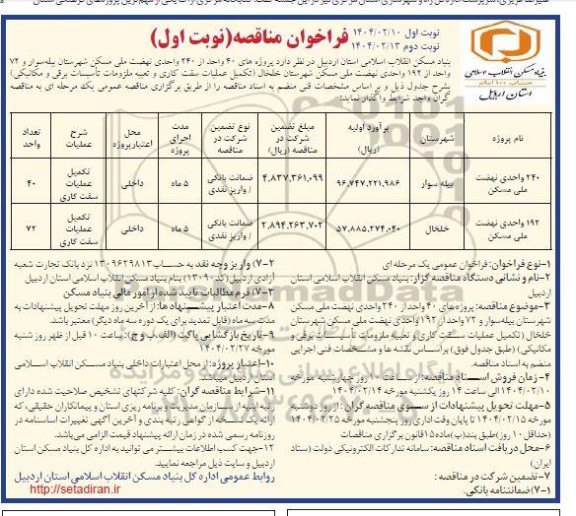 نوبت اول ۱۴۰۴/۰۲/۱۰
نوبت دوم ۱۴۰۴/۰۲/۱۳
فراخوان مناقصه(نوبت اول)
بنیاد مسکن انقلاب اسلامی
حساب ۱۰۰ امام
استان اردبیل
بنیاد مسکن انقلاب اسلامی استان اردبیل در نظر دارد پروژه های ۴۰ واحد از ۲۴۰ واحدی نهضت ملی مسکن شهرستان بیله‌سوار و ۷۲
واحد از ۱۹۲ واحدی نهضت ملی مسکن شهرستان خلخال (تکمیل عملیات سفت کاری و تعبیه ملزومات تأسیسات برقی و مکانیکی)
بشرح جدول ذیل و بر اساس مشخصات فنی منضم به اسناد مناقصه را از طریق برگزاری مناقصه عمومی یک مرحله ای به مناقصه
گران واجد شرایط واگذار نماید:
نام پروژه | شهرستان | برآورد اولیه (ریال) | مبلغ تضمین شرکت در مناقصه (ریال) | نوع تضمین شرکت در مناقصه | مدت اجرای پروژه | محل اعتبار پروژه | شرح عملیات | تعداد واحد
۲۴۰ واحدی نهضت ملی مسکن | بیله سوار | ۹۶,۷۴۷,۲۲۱,۹۸۶ | ۴,۸۳۷,۳۶۱,۰۹۹ | ضمانت بانکی / واریز نقدی | ۵ ماه | داخلی | تکمیل عملیات سفت کاری | ۴۰
۱۹۲ واحدی نهضت ملی مسکن | خلخال | ۵۷,۸۸۵,۲۷۴,۰۴۰ | ۲,۸۹۴,۲۶۳,۷۰۲ | ضمانت بانکی / واریز نقدی | ۵ ماه | داخلی | تکمیل عملیات سفت کاری | ۷۲
۱-نوع فراخوان: فراخوان عمومی یک مرحله ای
۲-نام و نشانی دستگاه مناقصه گزار: بنیاد مسکن انقلاب اسلامی استان
اردبیل
۳-موضوع مناقصه: پروژه های ۴۰ واحد از ۲۴۰ واحدی نهضت ملی مسکن
شهرستان بیله‌سوار و ۷۲ واحد از ۱۹۲ واحدی نهضت ملی مسکن شهرستان
خلخال (تکمیل عملیات سفت کاری و تعبیه ملزومات تأسیسات برقی و
مکانیکی) (طبق جدول فوق) براساس نقشه ها و مشخصات فنی اجرایی
منضم به اسناد مناقصه
۴- زمان فروش اسناد مناقصه: از ساعت ۱۰ روز چهارشنبه مورخه
۱۴۰۴/۰۲/۱۰ الی ساعت ۱۴ روز یکشنبه مورخه ۱۴۰۴/۰۲/۱۴
۵-مهلت تحویل پیشنهادات از سوی مناقصه گران: از روز دوشنبه
مورخه ۱۴۰۴/۰۲/۱۵ تا پایان وقت اداری روز پنجشنبه مورخه ۱۴۰۴/۰۲/۲۵
(حداقل ۱۰ روز) طبق بند(ب)ماده۱۵قانون برگزاری مناقصات
۶-محل دریافت اسناد مناقصه: سامانه تدارکات الکترونیکی دولت (ستاد
ایران)
۷-تضمین شرکت در مناقصه:
۷-۱)ضمانتنامه بانکی.
۷-۲) واریز وجه نقد به حساب ۱۳۰۹۶۲۹۸۱۳ نزد بانک تجارت شعبه
آزادی اردبیل(کد ۱۳۰۹۰) بنام بنیاد مسکن انقلاب اسلامی استان اردبیل
۷-۳) فرم مطالبات تایید شده از امور مالی بنیاد مسکن
۸-مدت اعتبار پیشنهاد ها: از آخرین روز مهلت تحویل پیشنهادات به
مدت سه ماه (قابل تمدید برای یک دوره سه ماه دیگر) معتبر باشد.
۹-تاریخ بازگشایی پاکت (الف، ب و ج): ساعت ۱۰ قبل از ظهر روز شنبه
مورخه ۱۴۰۴/۰۲/۲۷
۱۰-اعتبار پروژه: از محل اعتبارات داخلی بنیاد مسکن انقلاب اسلامی
استان اردبیل میباشد.
۱۱-شرایط مناقصه گران: کلیه شرکتهای تشخیص صلاحیت شده دارای
رتبه ابنیه از سازمان مدیریت و برنامه ریزی استان و پیمانکاران حقیقی، که
ارائه یک نسخه از گواهی رتبه بندی و آخرین آگهی تغییرات اساسنامه در
روزنامه رسمی شده در زمان ارائه پیشنهاد قیمت الزامی می‌باشد.
۱۲-جهت کسب اطلاعات بیشتر می توانید به اداره کل بنیاد مسکن استان
اردبیل و سایت ذیل مراجعه نمایید.
روابط عمومی اداره کل بنیاد مسکن انقلاب اسلامی استان اردبیل
http://setadiran.ir